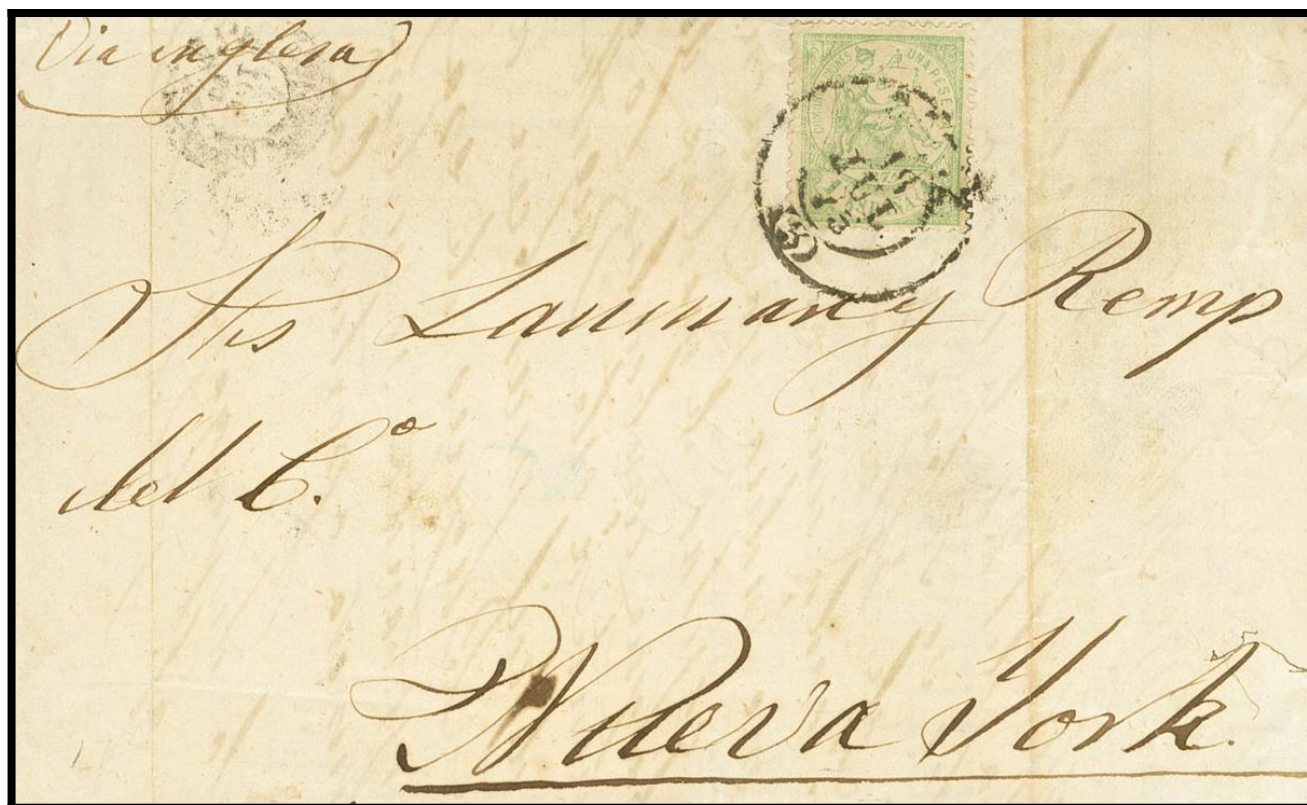 Via inglesa
UNA PESETA
JUL
Srs Lanman y Kemp
del C.º
Nueva York.